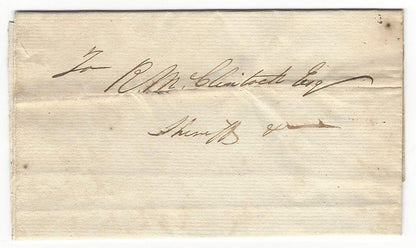 To
R. McClintock Esq
Sheriff &c